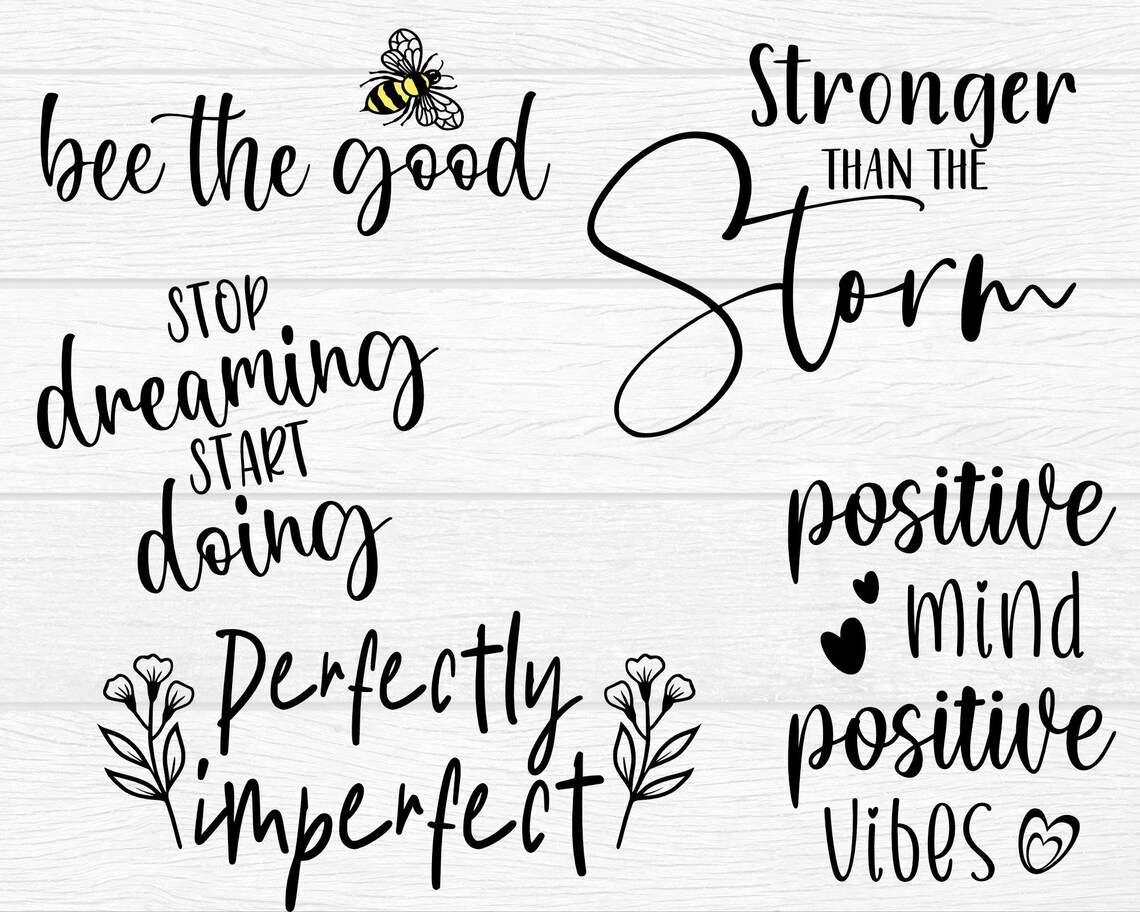 bee the good
Stronger
THAN THE
Storm
STOP
dreaming
START
doing
positive
mind
positive
vibes
Perfectly
imperfect